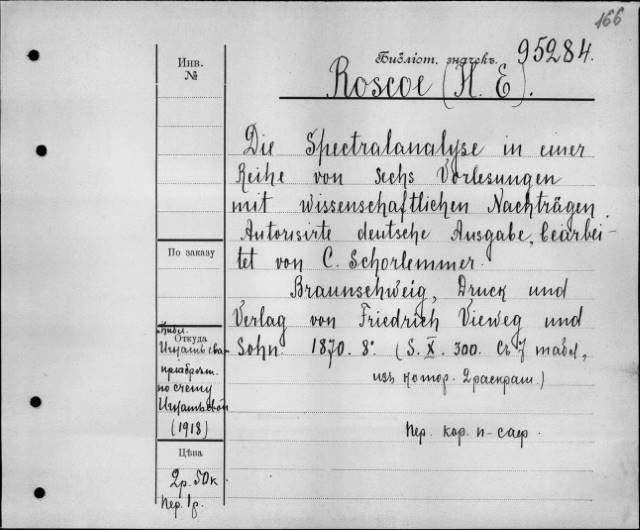 166
Библіот. значекъ. 95284.
Roscoe (H. E).
Инв.
№
Die Spectralanalyse in einer
Reihe von sechs Vorlesungen
mit wissenschaftlichen Nachträgen.
Autorisirte deutsche Ausgabe, bearbei-
tet von C. Schorlemmer.
Braunschweig, Druck und
Verlag von Friedrich Vieweg und
Sohn. 1870. 8°. (S. X. 300. Съ 7 табл.,
изъ котор. 2 раскраш.)
Пер. кор. п-саф.
По заказу
Библ.
Откуда
приобрѣт.
по счету
(1918)
Цѣна
2р. 50к
Пер. 1р.